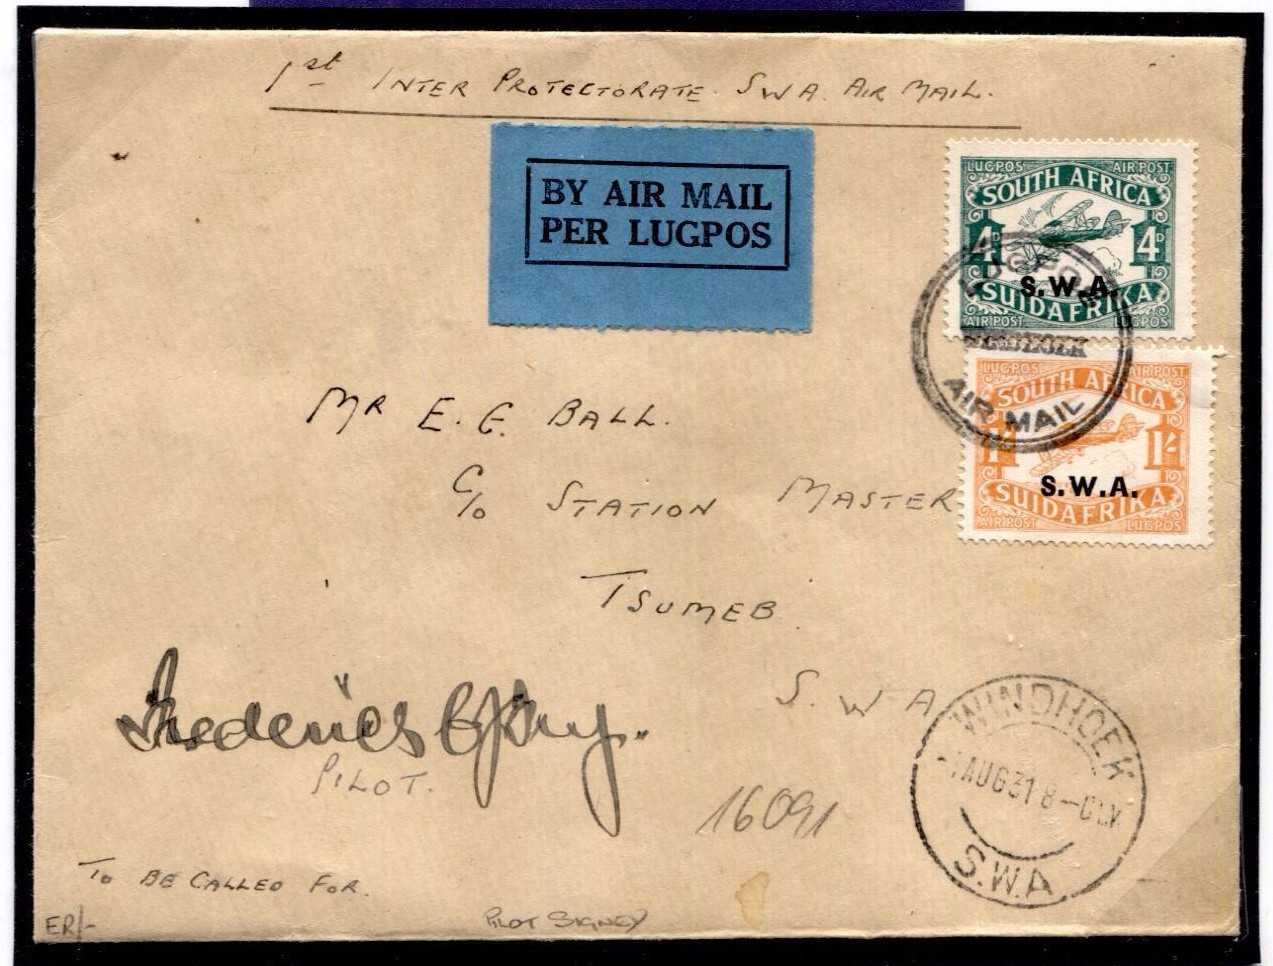 1st INTER PROTECTORATE. SWA. AIR MAIL.
BY AIR MAIL
PER LUGPOS
LUGPOS AIR POST
SOUTH AFRICA
4D 4D
S.W.A.
SUIDAFRIKA
AIR POST LUGPOS
LUGPOS
WINDHOEK
AIR MAIL
LUGPOS AIR POST
SOUTH AFRICA
1/- 1/-
S.W.A.
SUIDAFRIKA
AIR POST LUGPOS
MR E. G. BALL.
C/o STATION MASTER
TSUMEB.
S. W A
Frederick
PILOT.
16091
WINDHOEK
AUG 31 8
S.W.A.
TO BE CALLED FOR.
ER/-
PILOT SIGNED